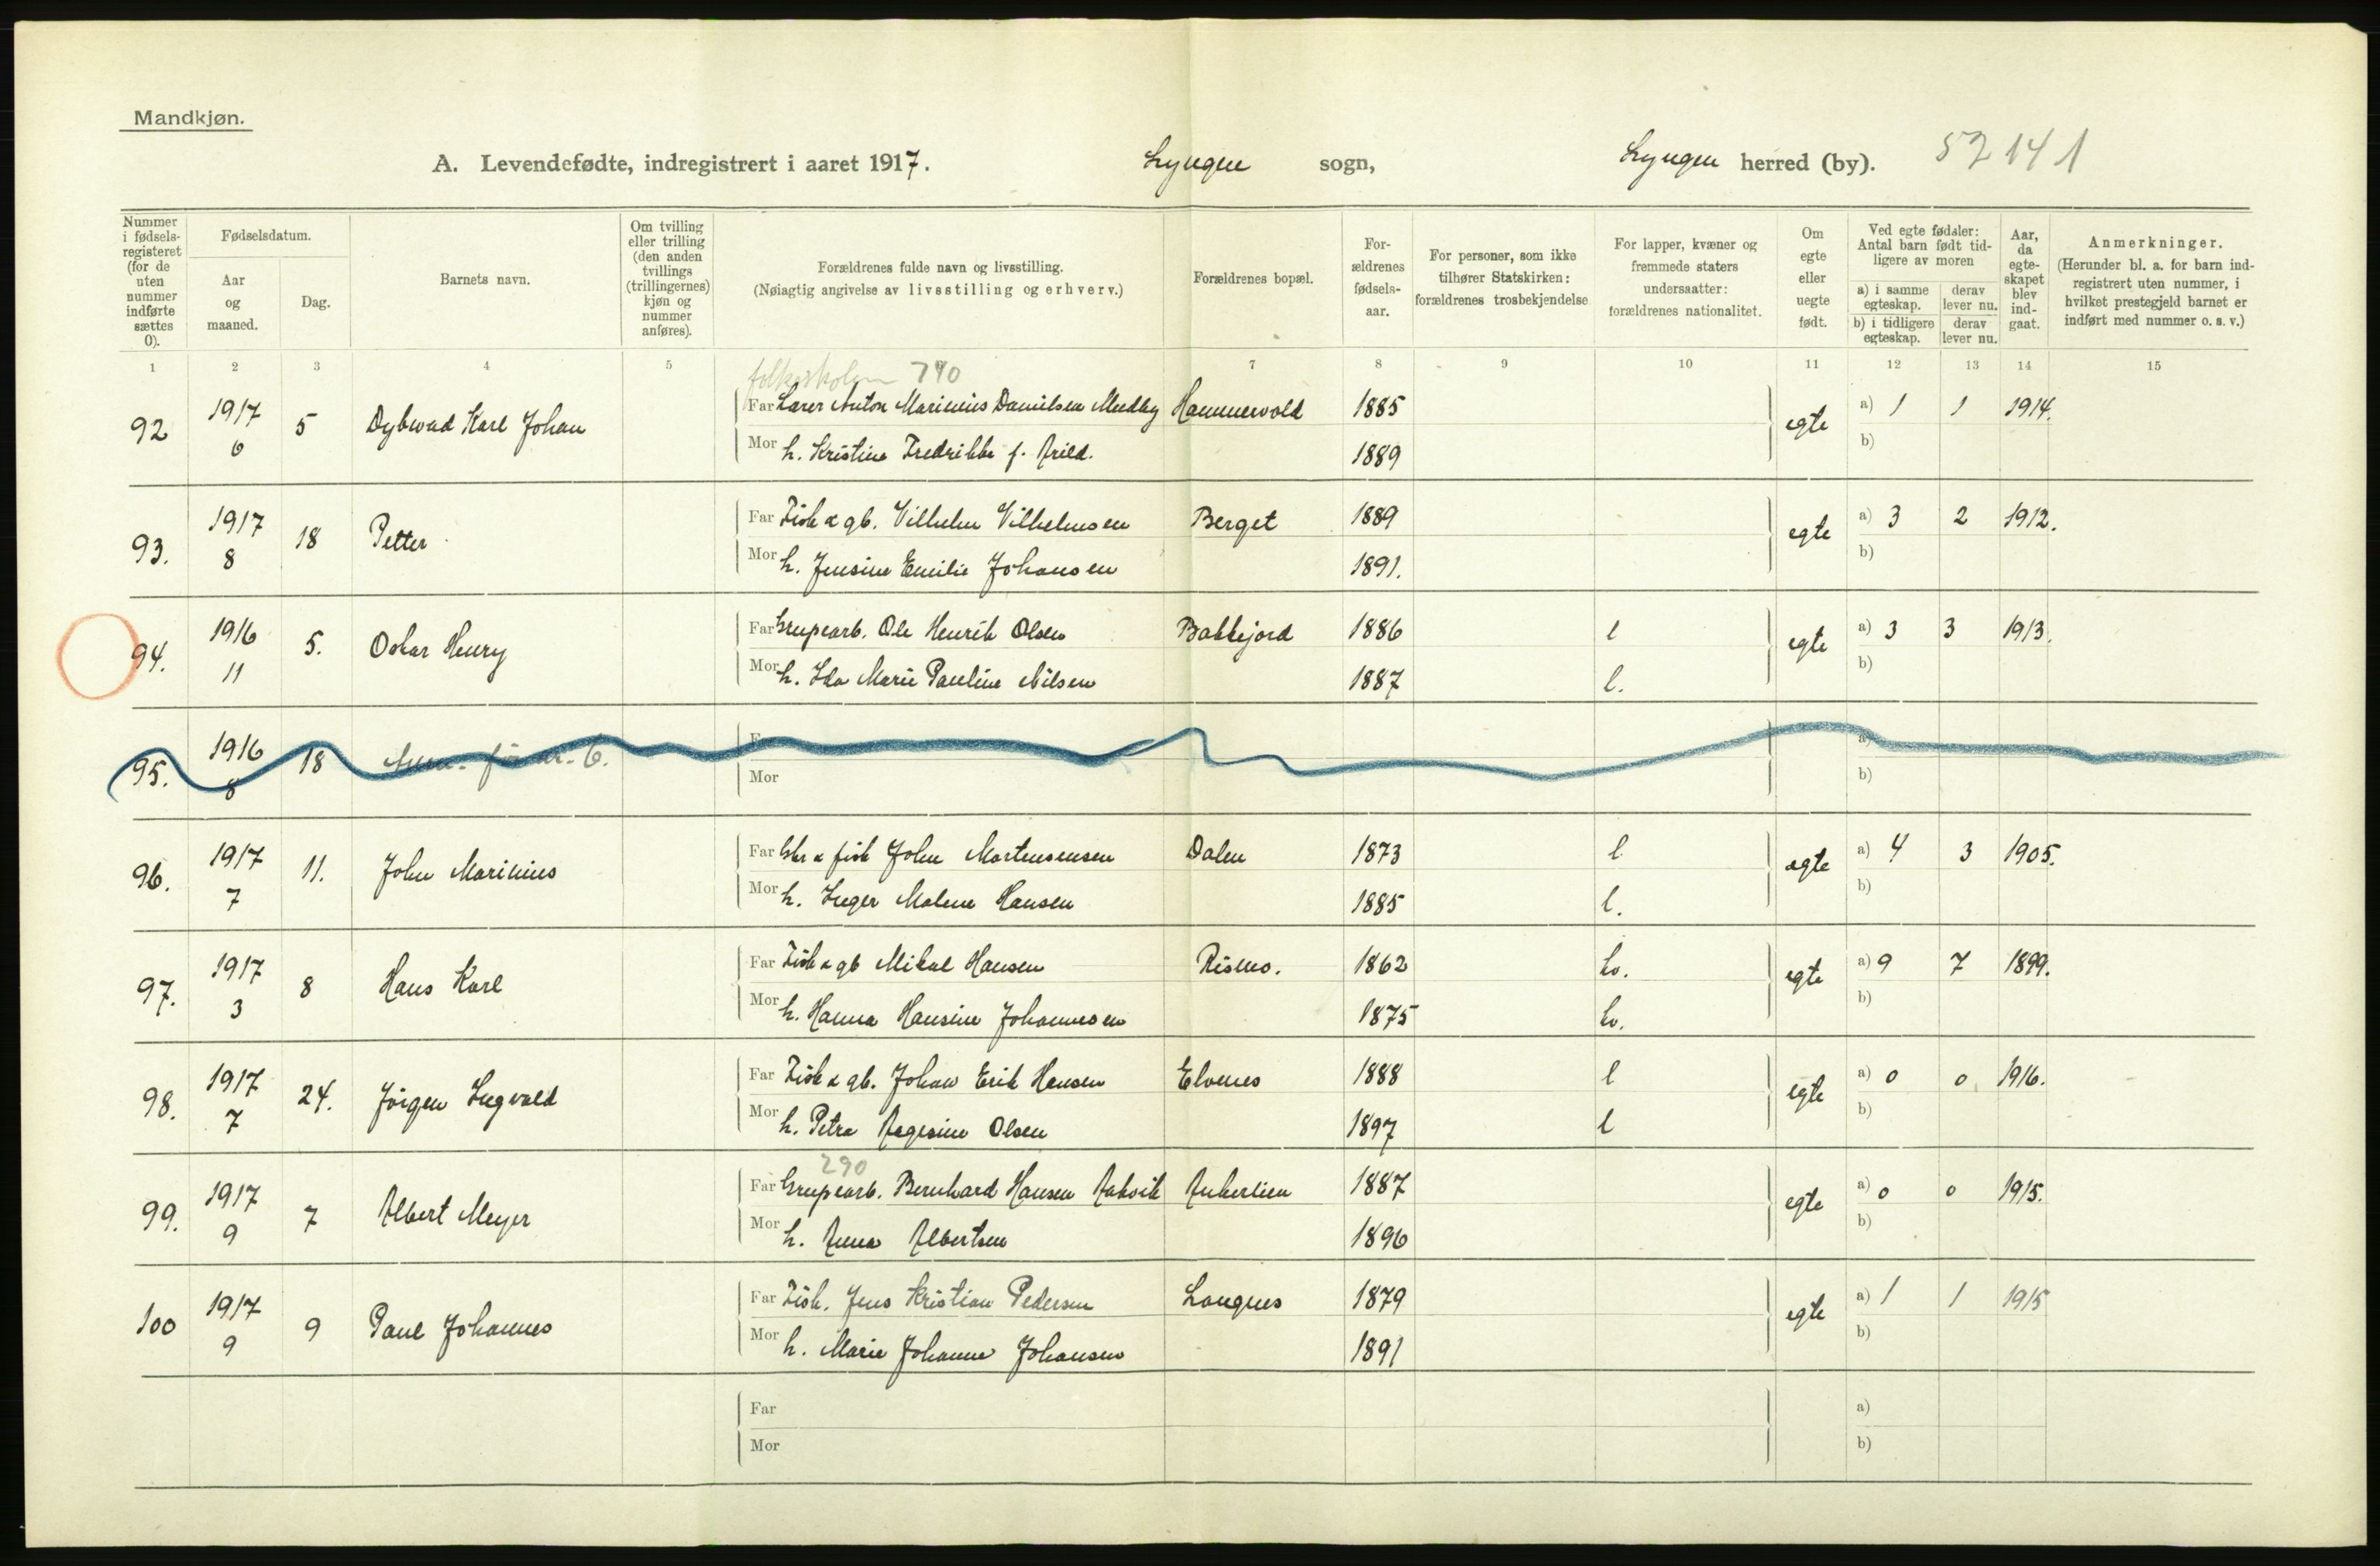 Mandkjøn.
A. Levendefødte, indregistrert i aaret 1917. Lyngen sogn, Lyngen herred (by). 52 14 1
Nummer i fødsels-registeret (for de uten nummer indførte sættes 0).
Fødselsdatum.
Aar og maaned.
Dag.
Barnets navn.
Om tvilling eller trilling (den anden tvillings (trillingernes) kjøn og nummer anføres).
Forældrenes fulde navn og livsstilling.
(Nøiagtig angivelse av livsstilling og erhverv.)
Forældrenes bopæl.
For-ældrenes fødsels-aar.
For personer, som ikke tilhører Statskirken: forældrenes trosbekjendelse
For lapper, kvæner og fremmede staters undersaatter: forældrenes nationalitet.
Om egte eller uegte født.
Ved egte fødsler: Antal barn født tid-ligere av moren
a) i samme egteskap. derav lever nu.
b) i tidligere egteskap. derav lever nu.
Aar, da egte-skapet blev ind-gaat.
Anmerkninger.
(Herunder bl. a. for barn ind-registrert uten nummer, i hvilket prestegjeld barnet er indført med nummer o. s. v.)
1 2 3 4 5 7 8 9 10 11 12 13 14 15
folkeskolen 790
92 1917 6 5 Dybwad Karl Johan Far Lærer Anton Marinius Danielsen Medby Hammervold 1885 egte a) 1 1 1914.
Mor h. Kristine Fredrikke f. Arild. 1889 b)
93. 1917 8 18 Petter Far Fisk & gb. Vilhelm Vilhelmsen Berget 1889 egte a) 3 2 1912.
Mor h. Jensine Emilie Johansen 1891. b)
94. 1916 11 5. Oskar Henry Far Grubearb. Ole Henrik Olsen Bakkejord 1886 l egte a) 3 3 1913.
Mor h. Ida Marie Pauline Nilsen 1887 l. b)
95. 1916 8 18
a)
Mor b)
96. 1917 7 11. John Marinius Far Gbr & fisk John Mortensensen Dalen 1873 l egte a) 4 3 1905.
Mor h. Inger Malene Hansen 1885 l. b)
97. 1917 3 8 Hans Karl Far Fisk & gb Mikal Hansen Rismo. 1862 kv. egte a) 9 7 1899.
Mor h. Hanna Hansine Johannesen 1875 kv. b)
98. 1917 7 24. Jörgen Ingvald Far Fisk & gb. Johan Erik Hansen Elvenes 1888 l egte a) 0 0 1916.
Mor h. Petra Aagesine Olsen 1897 l b)
290
99. 1917 9 7 Albert Meyer Far Grubearb. Bernhard Hansen Rakvik Ankerlien 1887 egte a) 0 0 1915.
Mor h. Anna Albertsen 1896 b)
100 1917 9 9 Paul Johannes Far Fisk. Jens Kristian Pedersen Langnes 1879 egte a) 1 1 1915
Mor h. Marie Johanne Johansen 1891 b)
Far a)
Mor b)